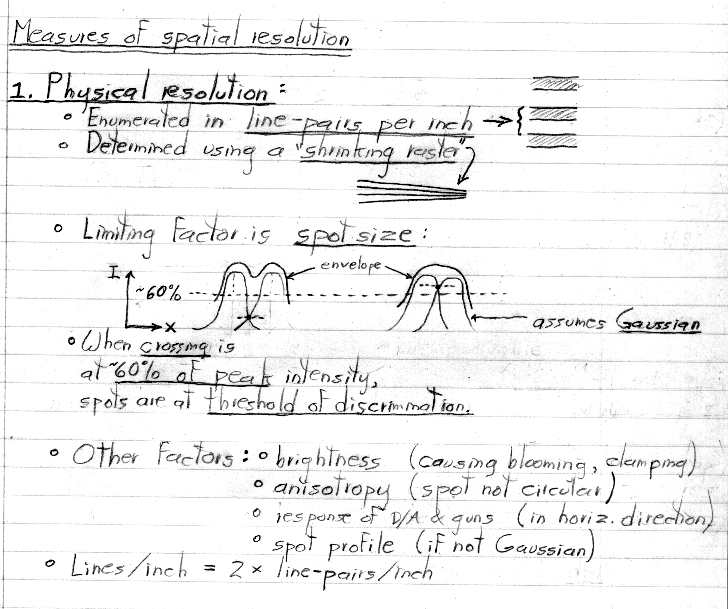 Measures of spatial resolution
1. Physical resolution:
° Enumerated in line-pairs per inch → {
° Determined using a "shrinking raster"
° Limiting Factor is spot size:
I
envelope
~60%
x
assumes Gaussian
° When crossing is
at ~60% of peak intensity,
spots are at threshold of discrimination.
° Other Factors: ° brightness (causing blooming, clamping)
° anisotropy (spot not circular)
° response of D/A & guns (in horiz. direction)
° spot profile (if not Gaussian)
° Lines/inch = 2 × line-pairs/inch